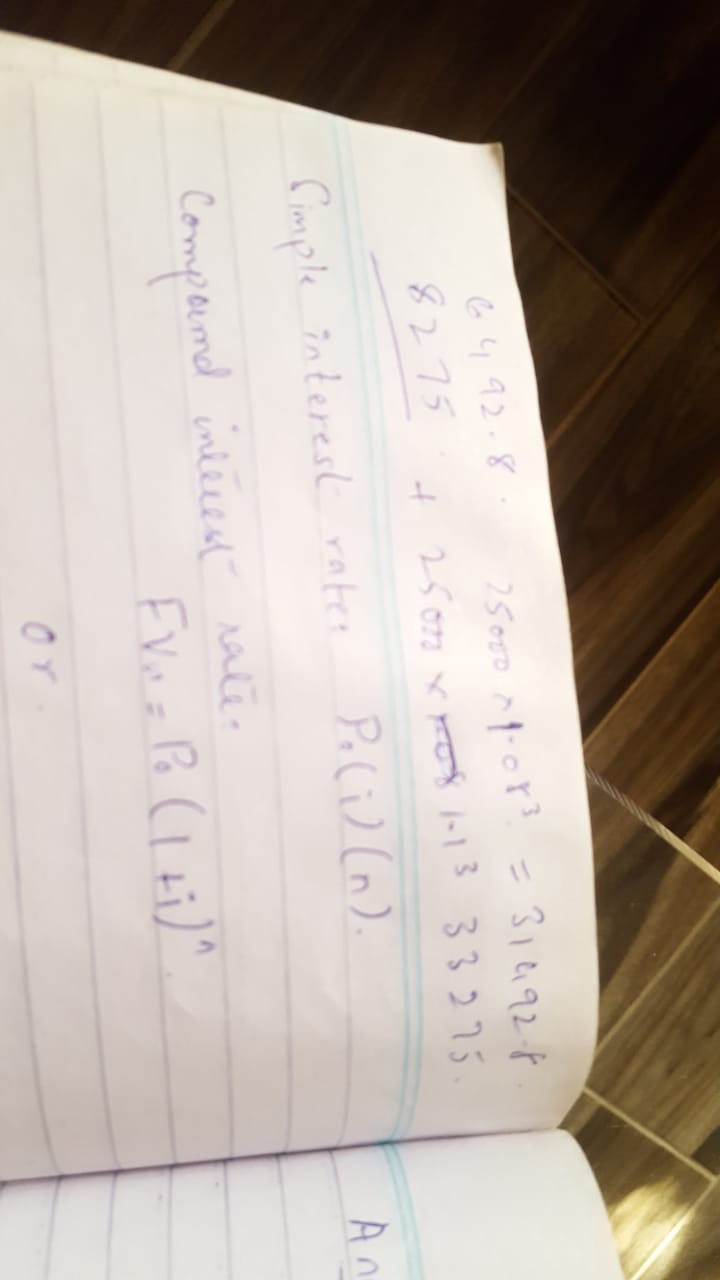 6492.8. 25000 × 1.08³. = 31492.8.
8275. + 25000 × 1.1³ 33275.
Simple interest rate: P₀(i)(n).
Compound interest rate:
FVₙ = P₀(1+i)ⁿ.
or.
An